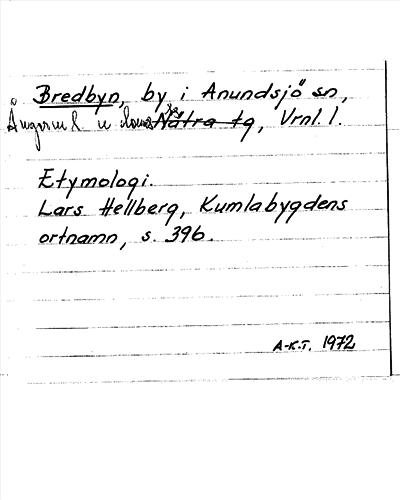 Bredbyn, by i Anundsjö sn,
Ångerml n Nätra tg, Vrnl. l.
Etymologi.
Lars Hellberg, Kumlabygdens
ortnamn, s. 396.
A-K.T. 1972